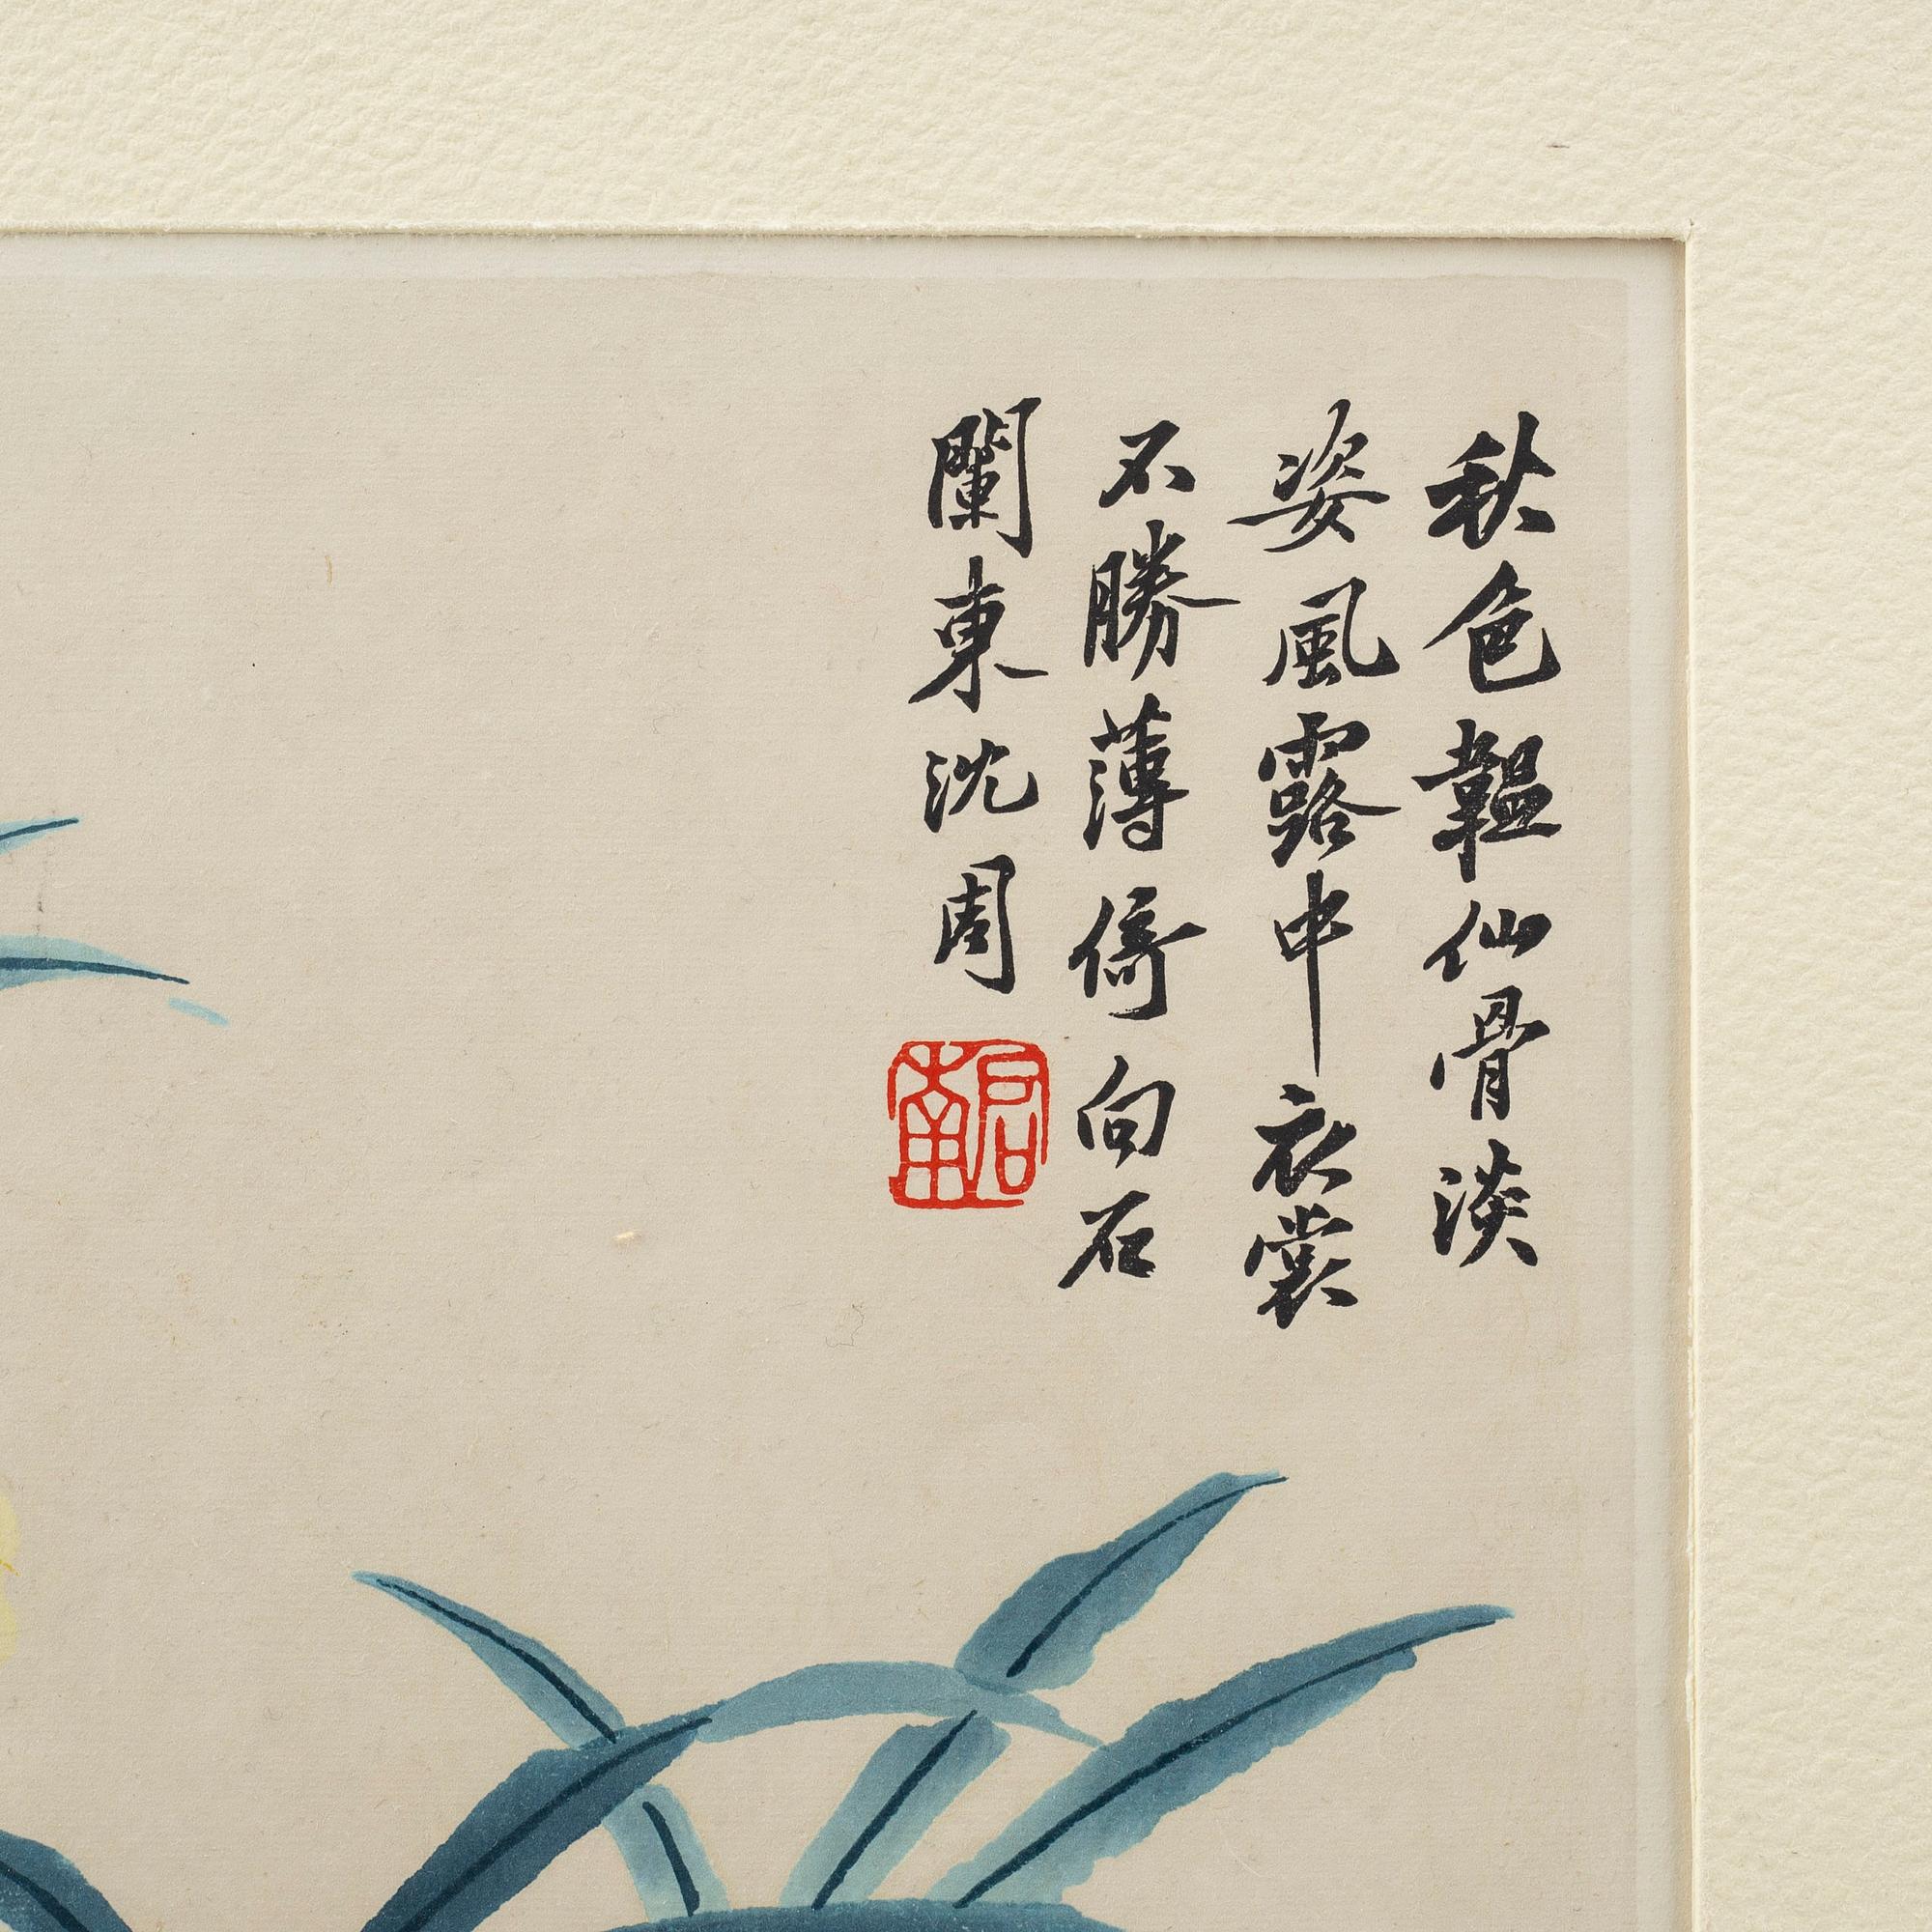 秋色韞仙骨淡
姿風露中衣裳
不勝薄倚向石
闌東沈周
启南